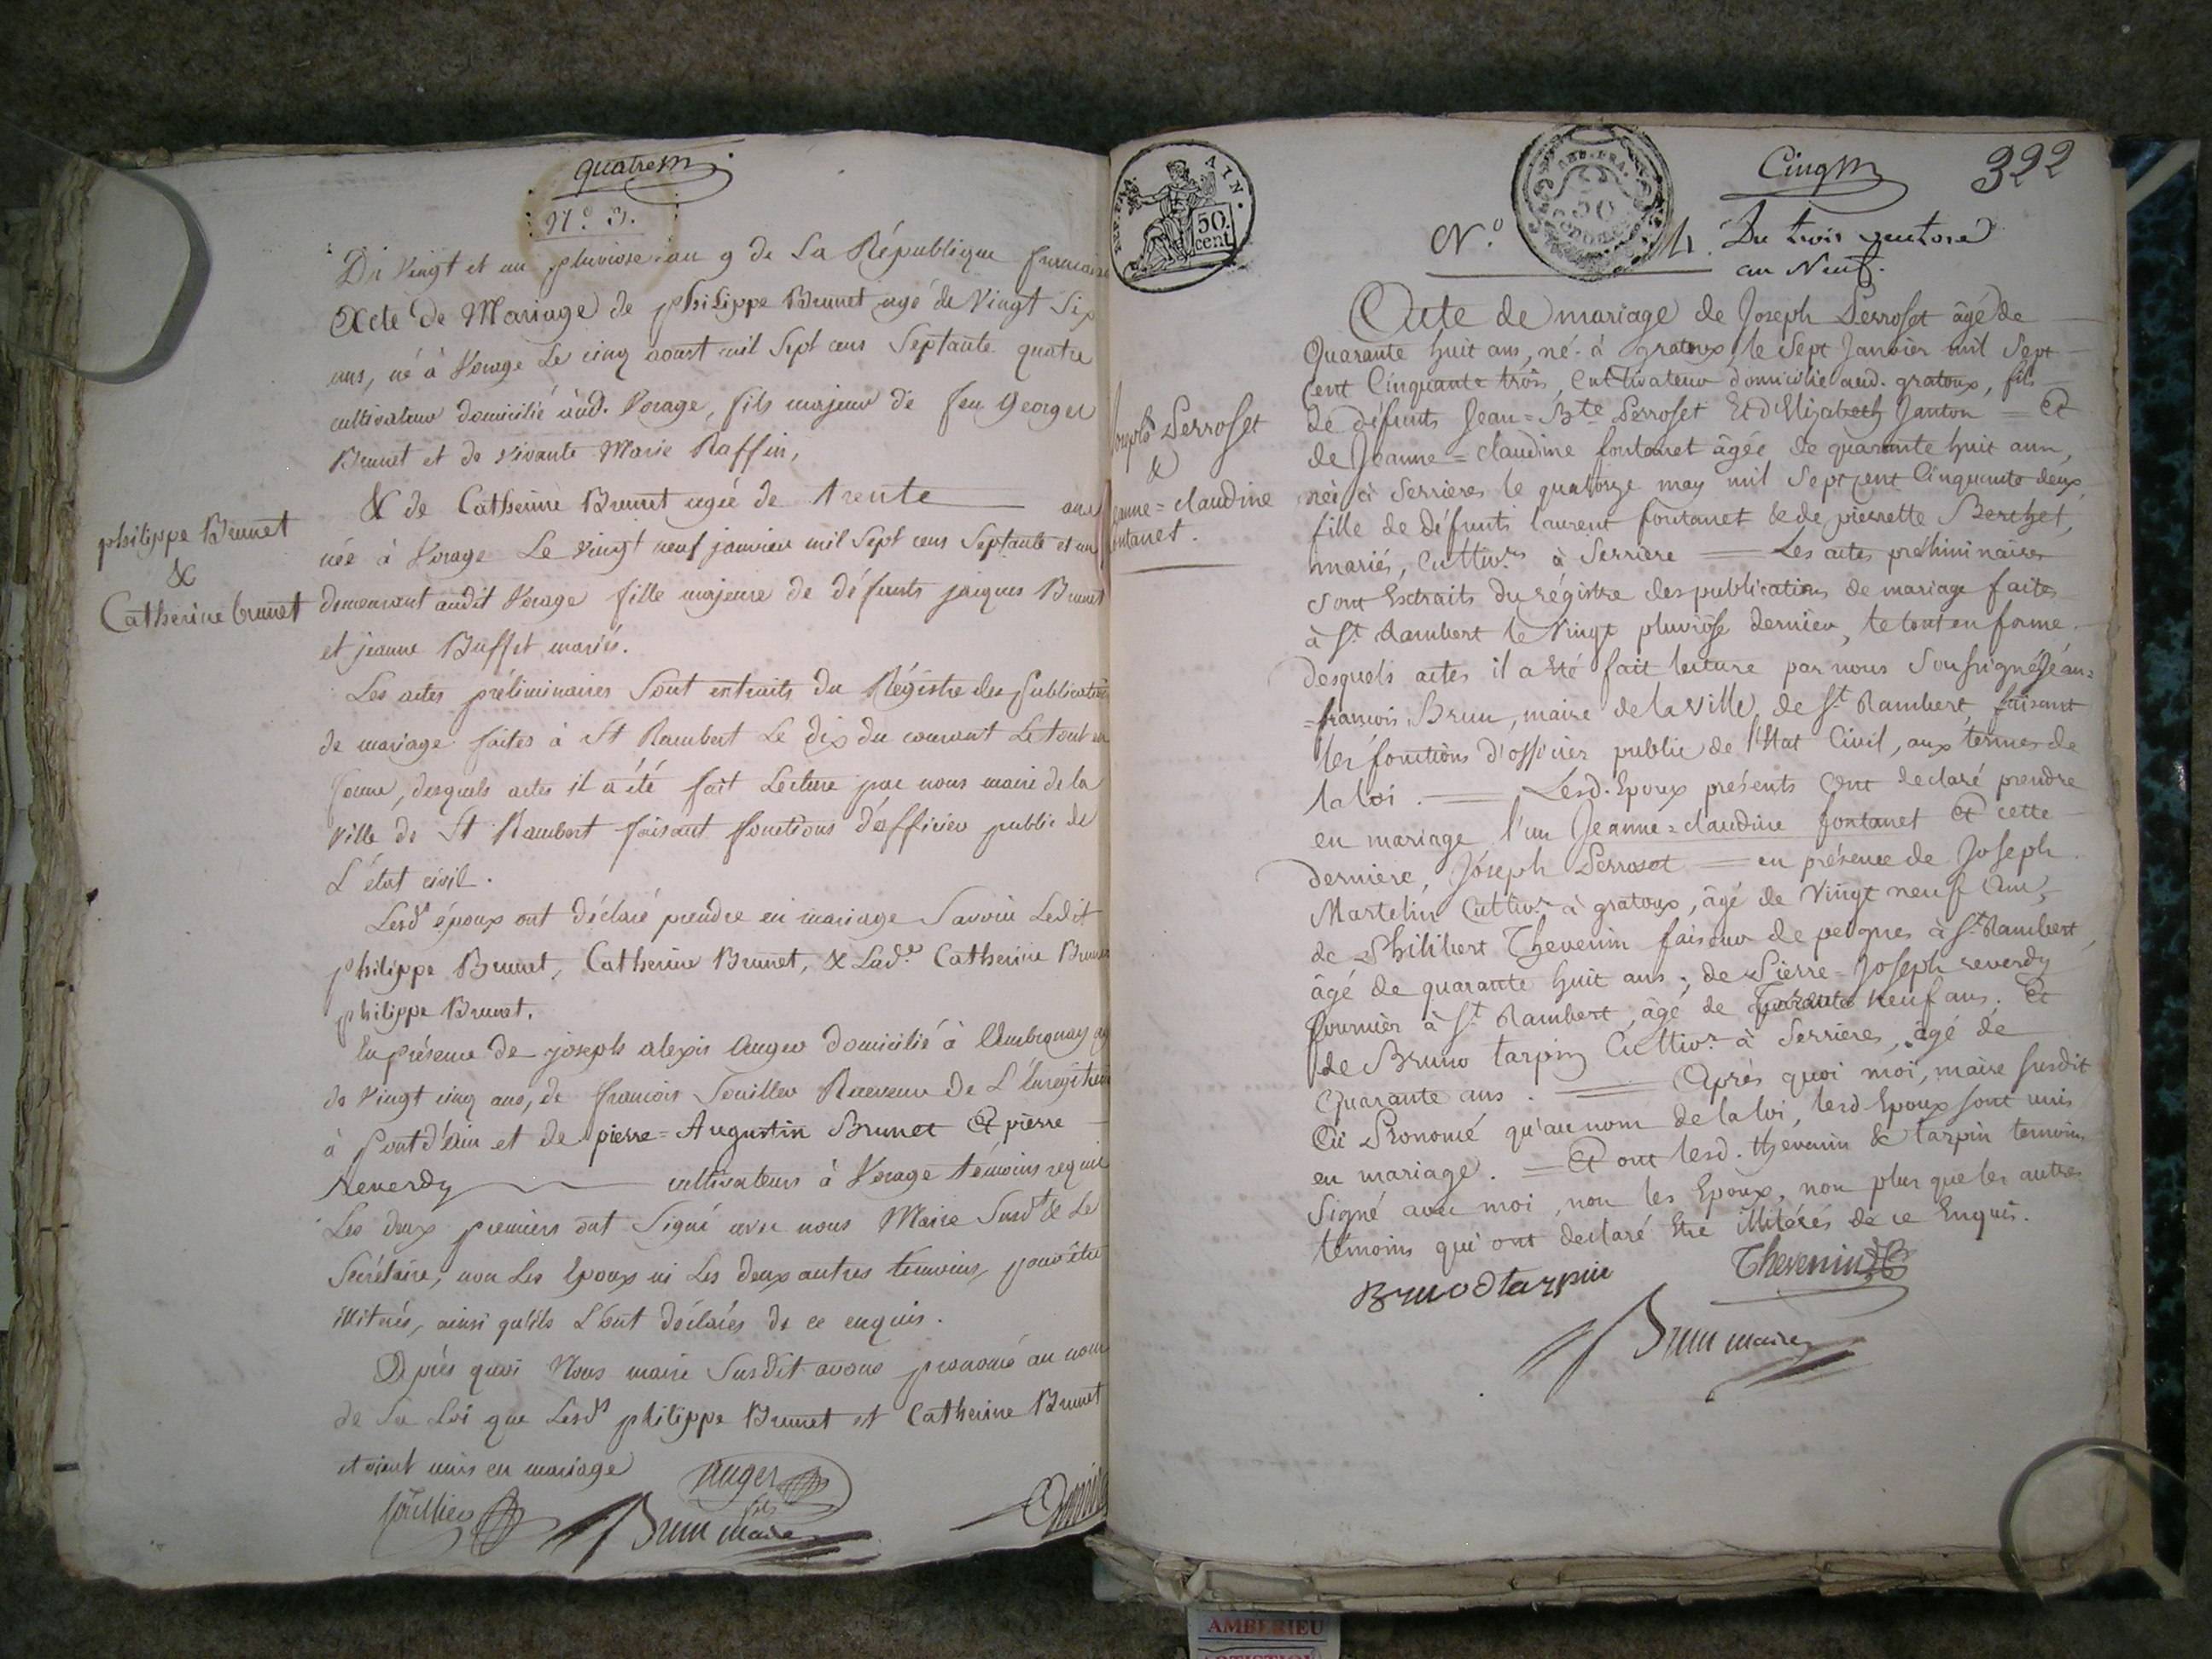 quatrem
N.° 3.
Du vingt et un pluviose an 9 de La République francaise
Acte de Mariage de philippe Brunet agé de vingt Six
ans, né à Vorage Le cinq aoust mil Sept cens Septante quatre
cultivateur domicilié aud. Vorage, fils majeur de feu George
Brunet et de vivante Marie Raffin,
& de Catherine Brunet agée de trente ans
née à Vorage Le vingt neuf janvier mil Sept cens Septante et un
demeurant audit Vorage fille majeure de défunts jacques Brunet
et jeanne Buffet mariés.
philippe Brunet
&
Catherine brunet
Les actes préliminaires Sont extraits du Régistre des publications
de mariage faites à St Rambert Le dix du courant Le tout en
forme, desquels actes il a été fait Lecture par nous maire de la
ville de St Rambert faisant fonctions d'officier public de
L'état civil.
Lesd.s époux ont déclaré prendre en mariage Savoir Ledit
philippe Brunet, Catherine Brunet, & Lad.e Catherine Brunet
philippe Brunet.
En présence de joseph alexis Auger domicilié à Ambronay
de vingt cinq ans, de francois Souiller Receveur de L'Enregistrem
à Pont d'ain et de pierre=Augustin Brunet Et pierre
reverdy cultivateurs à Vorage témoins requis
Les deux premiers ont Signé avec nous Maire Susd.t & Le
Secrétaire, non Les Epoux ni Les deux autres temoins, pour être
illiterés, ainsi qu'ils L'ont déclarés de ce enquis.
Après quoi Nous maire Susdit avons prononcé au nom
de La Loi que Lesd.s philippe Brunet et Catherine Brunet
etoient unis en mariage
Auger
fils
Souillier
Brun maire
AIN.
50.
cent
50
Cinqm
322
N.° 4. Du trois ventose
an Neuf.
Acte de mariage de Joseph Perroset âgé de
Quarante huit ans, né à gratoux, le Sept Janvier mil Sept
cent Cinquante trois, Cultivateur domicilié aud. gratoux, fils
de défunts Jean=B.te Perroset Et d'Elizabeth Janton = Et
de Jeanne=claudine fontanet âgée de quarante huit ans,
née à Serrieres le quatorze may mil Sept cent Cinquante deux,
fille de défunts laurent fontanet & de pierrette Berchet,
mariés, Cultiv.rs à Serriere = Les actes préliminaires
Sont Extraits du régistre des publications de mariage faites
à S.t Rambert le Vingt pluviôse dernier, le tout en forme.
Joseph Perroset
&
Jeanne=claudine
fontanet.
desquels actes il a Eté fait lecture par nous Soussigné Jean=
=francois Brun, maire de la Ville de S.t Rambert, faisant
les fonctions d'officier public de l'Etat Civil, aux termes de
la loi. = Lesd. Epoux présents Ont declaré prendre
en mariage, l'un Jeanne=claudine fontanet Et cette
derniere, Joseph Perroset = en présence de Joseph
Martelin Cultiv.r à gratoux, âgé de Vingt neuf Ans,
de Philibert Thevenin faiseur de peignes à S.t Rambert,
âgé de quarante huit ans; de Pierre=Joseph reverdy
fournier à S.t Rambert, âgé de neuf ans. Et
de Bruno tarpin Cultiv.r à Serrieres, âgé de
Quarante ans. = Après quoi moi, maire susdit
Ai Prononcé qu'au nom de la loi, lesd Epoux sont unis
en mariage. = Et ont lesd. thevenin & tarpin temoins
Signé avec moi, non les Epoux, non plus que les autres
témoins qui ont declaré Etre illitérés de ce Enquis.
Bruno tarpin
Thevenin
Brun maire
AMBERIEU